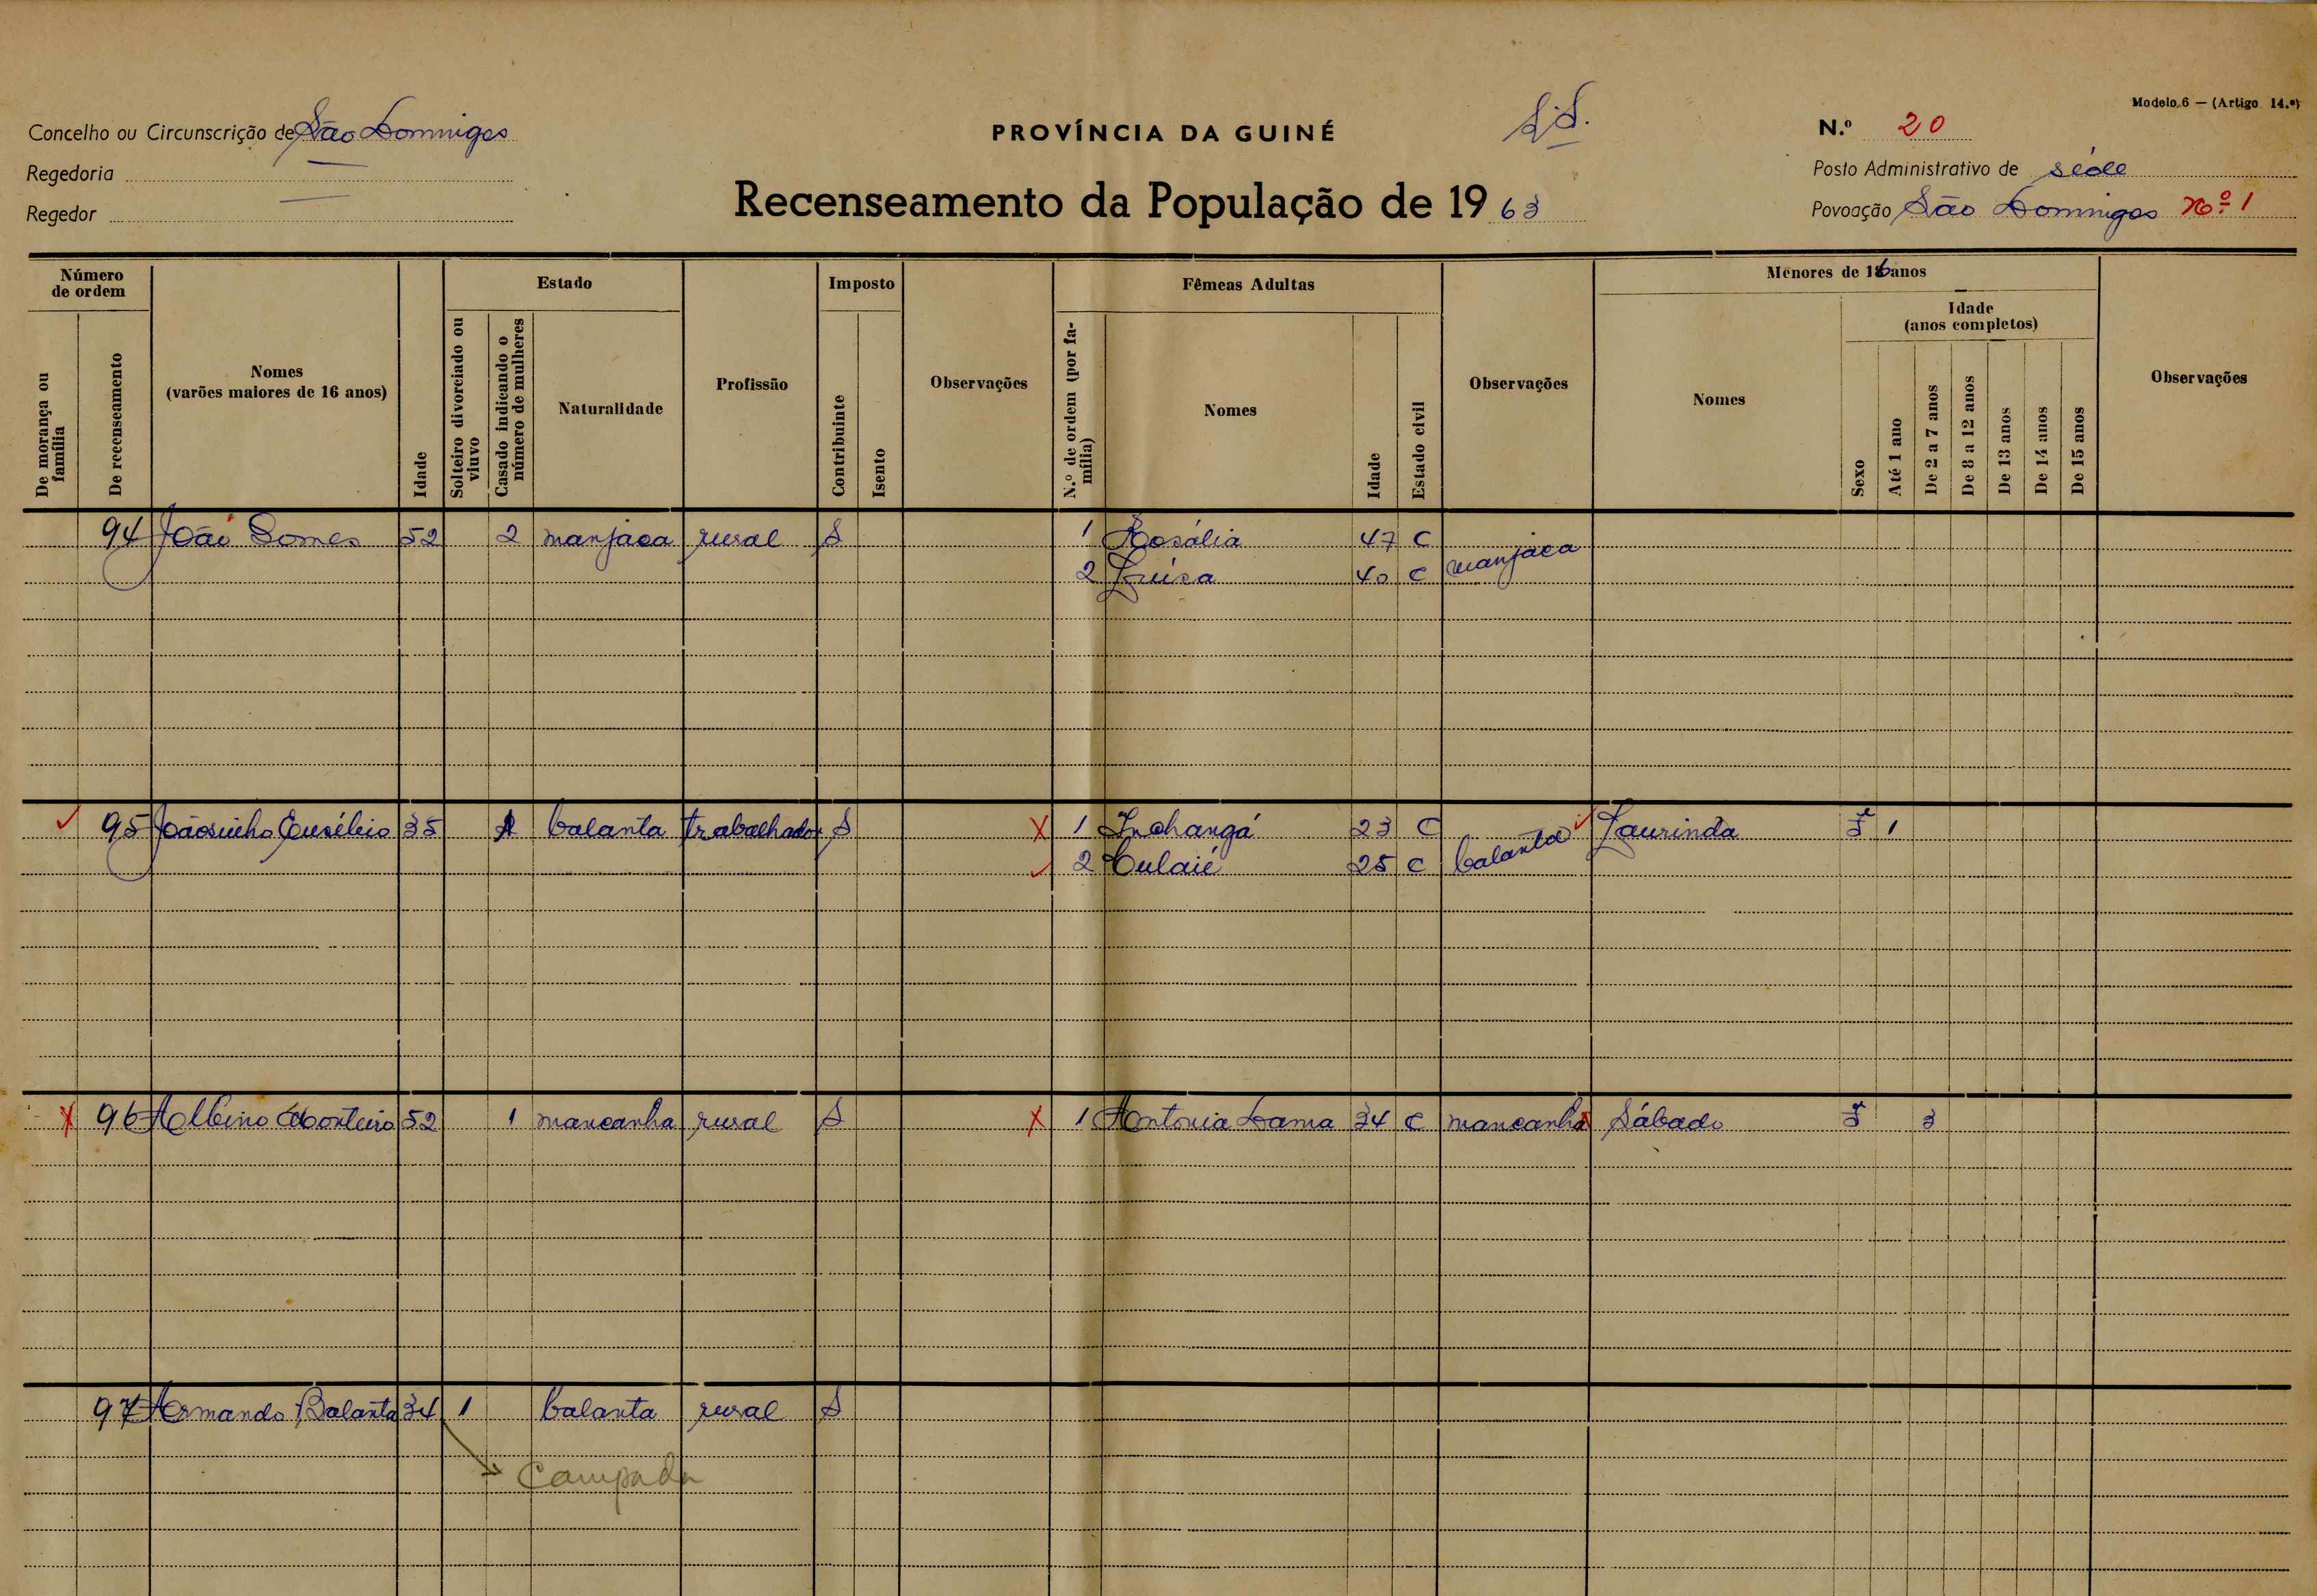 Modelo 6 — (Artigo 14.º)
Concelho ou Circunscrição de São Domingos
PROVÍNCIA DA GUINÉ
S.D.
N.º 20
Regedoria —
Posto Administrativo de séde
Regedor —
Recenseamento da População de 1963
Povoação São Domingos Nº 1
Número de ordem
De morança ou família
De recenseamento
Nomes
(varões maiores de 16 anos)
Idade
Estado
Solteiro divorciado ou viuvo
Casado indicando o número de mulheres
Naturalidade
Profissão
Imposto
Contribuinte
Isento
Observações
Fêmeas Adultas
N.º de ordem (por família)
Nomes
Idade
Estado civil
Observações
Menores de 16 anos
Nomes
Sexo
Idade
(anos completos)
Até 1 ano
De 2 a 7 anos
De 8 a 12 anos
De 13 anos
De 14 anos
De 15 anos
Observações
94 João Gomes 52 2 manjaca rural S 1 Rosália 47 C manjaca
2 Luisa 40 C
95 Joãosinho Eusébio 35 balanta trabalhador S X 1 Inchangá 23 C balanta Laurinda F 1
2 Culaié 25 C
X 96 Albino Monteiro 52 1 mancanha rural S X 1 Antonia Lama 34 C mancanha Sábado F 3
97 Armando Balanta 34 1 balanta rural S
Campada